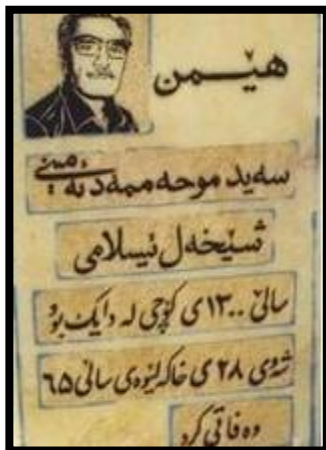 هێمن
سەید موحەممەد ئەمینی
شێخەل ئیسلامی
ساڵی ١٣٠٠ی کۆچی لە دایک بوو
شەوی ٢٨ی خاکەلێوەی ساڵی ٦٥
وەفاتی کرد